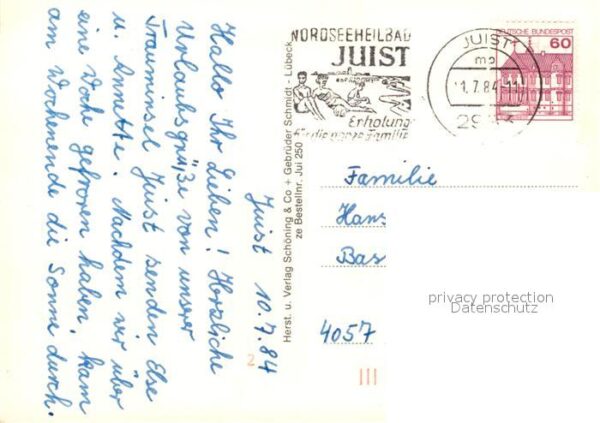 Juist 10.7.84
Hallo Ihr Lieben! Herzliche
Urlaubsgrüße von unserer
Trauminsel Juist senden Else
u. Annette. Nachdem wir über
eine Woche gefroren haben, kam
am Wochenende die Sonne durch.
Herst. u. Verlag Schöning & Co + Gebrüder Schmidt - Lübeck
ze Bestellnr. Jui 250
NORDSEEHEILBAD
JUIST
Erholung
für die ganze Familie
JUIST
mb
11.7.84-11
DEUTSCHE BUNDESPOST
60
Familie
Hans
Bas
4057
privacy protection
Datenschutz
2